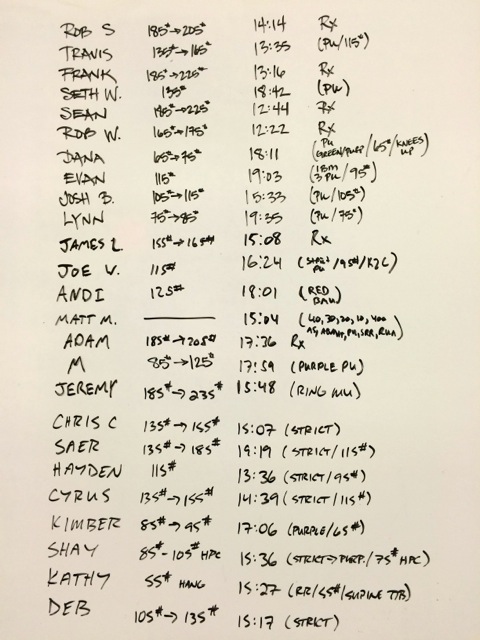 ROB S 185#→205# 14:14 Rx
TRAVIS 135#→165# 13:35 (PU/115#)
FRANK 185#→225# 13:16 Rx
SETH W. 135# 18:42 (PU)
SEAN 185#→225# 12:44 Rx
ROB W. 165#→175# 12:22 Rx
DANA 65#→75# 18:11 (PU GREEN/PURP/65#/KNEES UP)
EVAN 115# 19:03 (3 PU/95#)
JOSH B. 105#→115# 15:33 (PU/105#)
LYNN 75#→85# 19:35 (PU/75#)
JAMES L. 155#→165# 15:08 Rx
JOE V. 115# 16:24 (STRCT PU/95#/K2C)
ANDI 125# 18:01 (RED BAND)
MATT M. —— 15:04 (40,30,20,10,400
ADAM 185#→205# 17:36 Rx
M 85#→125# 17:59 (PURPLE PU)
JEREMY 185#→235# 15:48 (RING MU)
CHRIS C 135#→155# 15:07 (STRICT)
SAER 135#→185# 19:19 (STRICT/115#)
HAYDEN 115# 13:36 (STRICT/95#)
CYRUS 135#→155# 14:39 (STRICT/115#)
KIMBER 85#→95# 17:06 (PURPLE/65#)
SHAY 85#-105# HPC 15:36 (STRICT→PURP./75# HPC)
KATHY 55# HANG 15:27 (RR/45#/SUPINE TTB)
DEB 105#→135# 15:17 (STRICT)